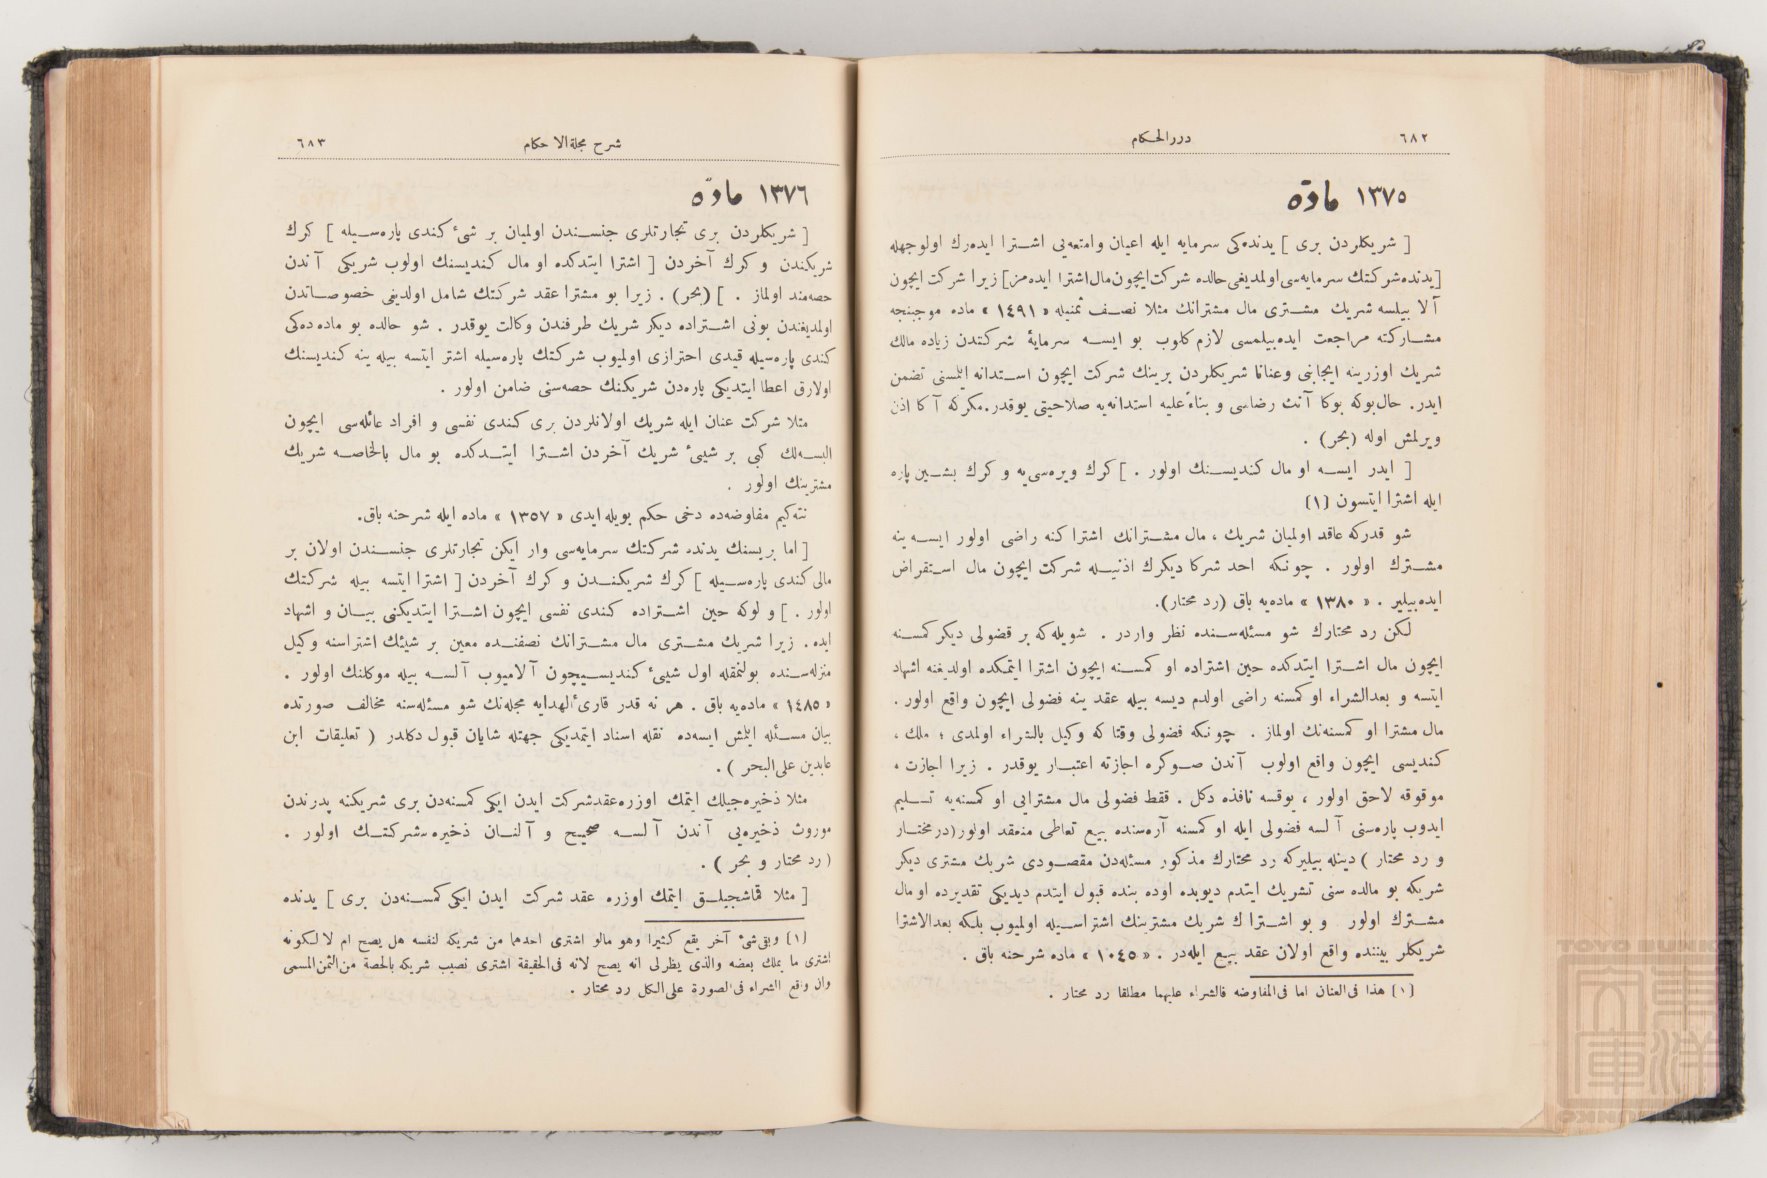 ٦٨٢
دررالحكام
١٣٧٥ مادّه
[ شريكلردن برى ] يدنده‌كى سرمايه ايله اعيان وامتعه‌يى اشترا ايده‌رك اولوجهله
[يدنده شركتك سرمايه‌سى اولمديغى حالده شركت ايچون مال اشترا ايده‌مز] زيرا شركت ايچون
آلا بيلسه شريك مشترى مال مشترانك مثلا نصف ثمنيله « ١٤٩١ » ماده موجبنجه
مشاركته مراجعت ايده‌بيلمسى لازم كلوب بو ايسه سرمايۀ شركتدن زياده مالك
شريك اوزرينه ايجابنى وعنانا شريكلردن برينك شركت ايچون استدانه ايلمسنى تضمن
ايدر. حال‌بوكه بوكا آنك رضاسى و بناءً عليه استدانه‌يه صلاحيتى يوقدر. مكركه آ كا اذن
ويرلمش اوله (بحر) .
[ ايدر ايسه او مال كنديسنك اولور . ] كرك ويره‌سى‌يه و كرك پشين پاره
ايله اشترا ايتسون (١)
شو قدركه عاقد اولميان شريك ، مال مشترانك اشترا كنه راضى اولور ايسه ينه
مشترك اولور . چونكه احد شركا ديكرك اذنيله شركت ايچون مال استقراض
ايده‌بيلير . « ١٣٨٠ » ماده‌يه باق (رد محتار).
لكن رد محتارك شو مسئله‌سنده نظر واردر . شويله‌كه بر فضولى ديكر كمسنه
ايچون مال اشترا ايتدكده حين اشتراده او كمسنه ايچون اشترا ايتمكده اولديغنه اشهاد
ايتسه و بعدالشراء او كمسنه راضى اولدم ديسه بيله عقد ينه فضولى ايچون واقع اولور .
مال مشترا او كمسنه‌نك اولماز . چونكه فضولى وقتا كه وكيل بالشراء اولمدى ؛ ملك ،
كنديسى ايچون واقع اولوب آندن صوكره اجازته اعتبار يوقدر . زيرا اجازت ،
موقوفه لاحق اولور ، يوقسه نافذه دكل . فقط فضولى مال مشترايى او كمسنه‌يه تسليم
ايدوب پاره‌سنى آلسه فضولى ايله او كمسنه آره‌سنده بيع تعاطى منعقد اولور (درمختار
و رد محتار ) دينله بيليركه رد محتارك مذكور مسئله‌دن مقصودى شريك مشترى ديكر
شريكه بو مالده سنى تشريك ايتدم ديوبده اوده بنده قبول ايتدم ديديكى تقديرده او مال
مشترك اولور و بو اشتراك شريك مشترينك اشتراسيله اولميوب بلكه بعدالاشترا
شريكلر بيننده واقع اولان عقد بيع ايله‌در . « ١٠٤٥ » ماده شرحنه باق .
(١) هذا فى‌العنان اما فى‌المفاوضه فالشراء عليهما مطلقا رد محتار .
شرح مجلة‌الاحكام
٦٨٣
١٣٧٦ مادّه
[ شريكلردن برى تجارتلرى جنسندن اولميان بر شئ كندى پاره‌سيله ] كرك
شريكندن و كرك آخردن [ اشترا ايتدكده او مال كنديسنك اولوب شريكى آندن
حصه‌مند اولماز . ] (بحر) . زيرا بو مشترا عقد شركتك شامل اولديغى خصوصاتدن
اولمديغندن بونى اشتراده ديكر شريك طرفندن وكالت يوقدر . شو حالده بو ماده‌ده‌كى
كندى پاره‌سيله قيدى احترازى اولميوب شركتك پاره‌سيله اشتر ايتسه بيله ينه كنديسنك
اولارق اعطا ايتديكى پاره‌دن شريكنك حصه‌سنى ضامن اولور .
مثلا شركت عنان ايله شريك اولانلردن برى كندى نفسى و افراد عائله‌سى ايچون
البسه‌لك كبى بر شيئ شريك آخردن اشترا ايتدكده بو مال بالخاصه شريك
مشترينك اولور .
نته‌كيم مفاوضه‌ده دخى حكم بويله ايدى « ١٣٥٧ » ماده ايله شرحنه باق.
[ اما بريسنك يدنده شركتك سرمايه‌سى وار ايكن تجارتلرى جنسندن اولان بر
مالى كندى پاره‌سيله ] كرك شريكندن و كرك آخردن [ اشترا ايتسه بيله شركتك
اولور . ] و لوكه حين اشتراده كندى نفسى ايچون اشترا ايتديكنى بيان و اشهاد
ايده . زيرا شريك مشترى مال مشترانك نصفنده معين بر شيئك اشتراسنه وكيل
منزله‌سنده بولنمغله اول شيئ كنديسيچون آلاميوب آلسه بيله موكلنك اولور .
« ١٤٨٥ » ماده‌يه باق . هر نه قدر قارئ‌الهدايه مجله‌نك شو مسئله‌سنه مخالف صورتده
بيان مسئله ايلمش ايسه‌ده نقله اسناد ايتمديكى جهتله شايان قبول دكلدر ( تعليقات ابن
عابدين على‌البحر ) .
مثلا ذخيره‌جيلك ايتمك اوزره عقدشركت ايدن ايكى كمسنه‌دن برى شريكنه پدرندن
موروث ذخيره‌يى آندن آلسه صحيح و آلنان ذخيره شركتك اولور .
( رد محتار و بحر ) .
[ مثلا قماشجيلق ايتمك اوزره عقد شركت ايدن ايكى كمسنه‌دن برى ] يدنده
(١) وبقى شئ آخر يقع كثيرا وهو مالو اشترى احدهما من شريكه لنفسه هل يصح ام لا لكونه
اشترى ما يملك بعضه والذى يظرلى انه يصح لانه فى‌الحقيقة اشترى نصيب شريكه بالحصة من‌الثمن‌المسمى
وان واقع الشراء فى‌الصورة على‌الكل رد محتار .
TOYO BUNKO
東洋文庫